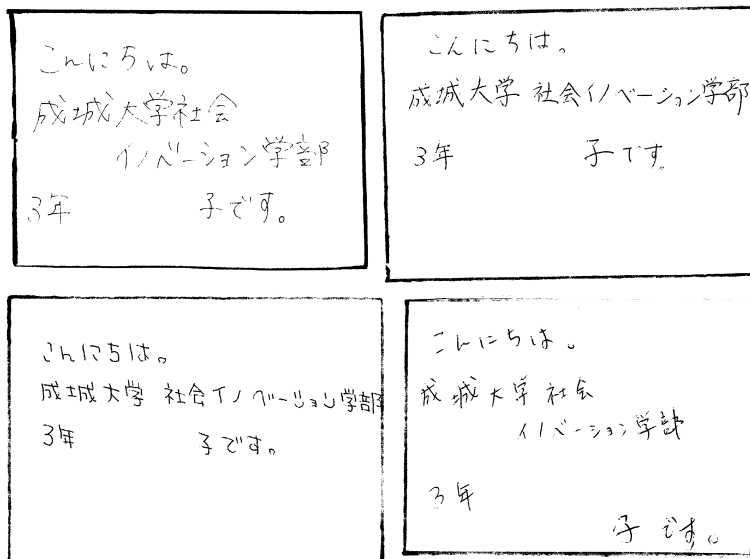 こんにちは。
成城大学社会
イノベーション学部
3年 子です。
こんにちは。
成城大学 社会イノベーション学部
3年 子です。
こんにちは。
成城大学 社会イノベーション学部
3年 子です。
こんにちは。
成城大学 社会
イノベーション学部
3年
子です。